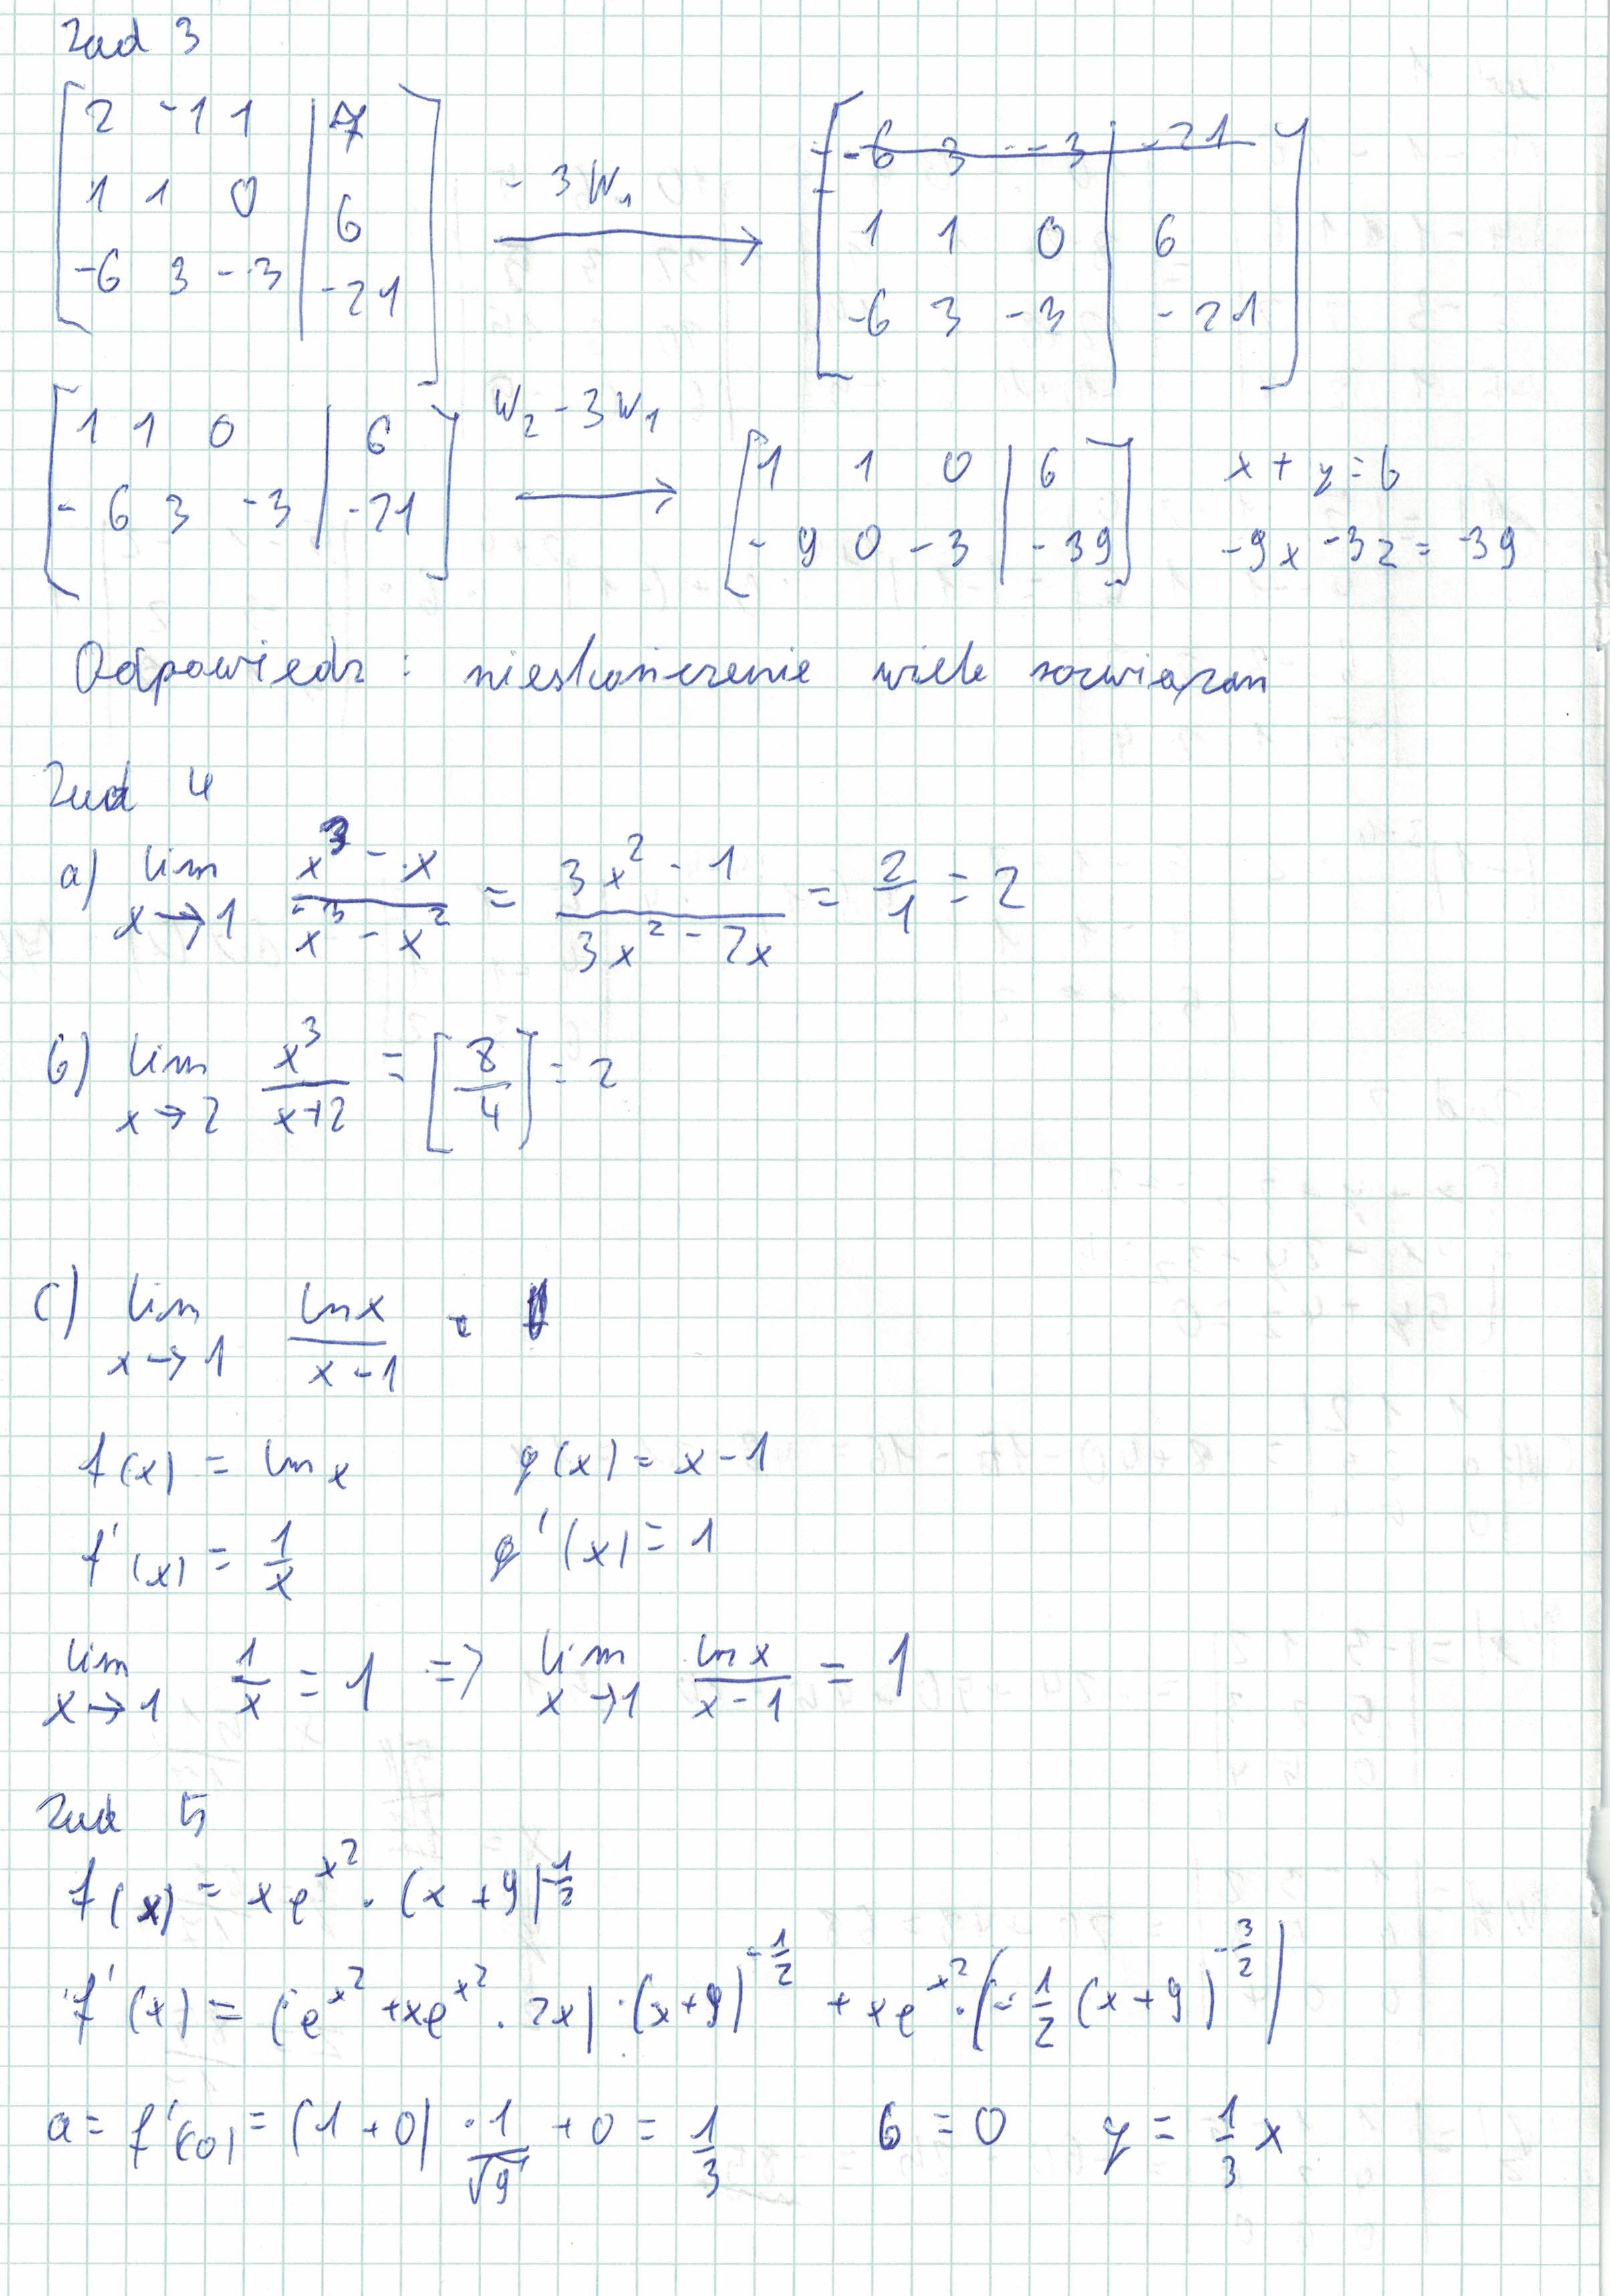 Zad 3
[2 -1 1 | 7]
[1 1 0 | 6]
[-6 3 -3 | -21]
-3W₁ →
[-6 3 -3 | -21]
[1 1 0 | 6]
[-6 3 -3 | -21]
[1 1 0 | 6]
[-6 3 -3 | -21]
W₂ - 3W₁ →
[1 1 0 | 6] x + y = 6
[-9 0 -3 | -39] -9x - 3z = -39
Odpowiedz : nieskończenie wiele rozwiązań
Zad 4
a) lim x→1 (x³ - x)/(x³ - x²) = (3x² - 1)/(3x² - 2x) = 2/1 = 2
b) lim x→2 x³/(x+2) = [8/4] = 2
c) lim x→1 ln x/(x-1) = 1
f(x) = ln x g(x) = x-1
f'(x) = 1/x g'(x) = 1
lim x→1 1/x = 1 => lim x→1 ln x/(x-1) = 1
Zad 5
f(x) = xe^(x²) · (x+9)^(-1/2)
f'(x) = (e^(x²) + xe^(x²) · 2x) · (x+9)^(-1/2) + xe^(x²) · (-1/2 (x+9)^(-3/2))
a = f'(0) = (1+0) · 1/√9 + 0 = 1/3 b = 0 y = 1/3 x